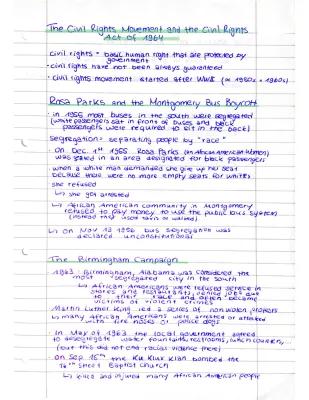 The Civil Rights Movement and the Civil Rights
Act of 1964
civil rights = basic human right that are protected by
government
- civil rights have not been always guaranteed
- civil rights movement started after WWII (≈ 1950s - 1960s)
Rosa Parks and the Montgomery Bus Boycott
- in 1955 most buses in the south were segregated
(white passengers sat in front of buses and black
passengers were required to sit in the back)
segregation = separating people by "race"
- On Dec. 1st 1955 Rosa Parks (an African American Woman)
was seated in an area designated for black passengers
when a white man demanded she give up her seat
because there were no more empty seats for whites
she refused
↳ she got arrested
↳ African American community in Montgomery
refused to pay money to use the public bus system
(instead they used taxis or walked)
↳ On Nov 13 1956 bus segregation was
declared unconstitutional
The Birmingham Campaign
1963: Birmingham, Alabama was considered the
most segregated city in the south
↳ African Americans were refused service in
stores and restaurants, denied jobs due
to their race and often became
victims of violent crimes
Martin Luther King led a series of nonviolent protests
↳ many African Americans were arrested or attacked
with fire hoses or police dogs
- In May of 1963 the local government agreed
to desegregate water fountains, restrooms,
(but this did not end racial violence there)
- On Sep 15th the Ku Klux Klan bombed the
16th Street Baptist Church
↳ killed and injured many African American people